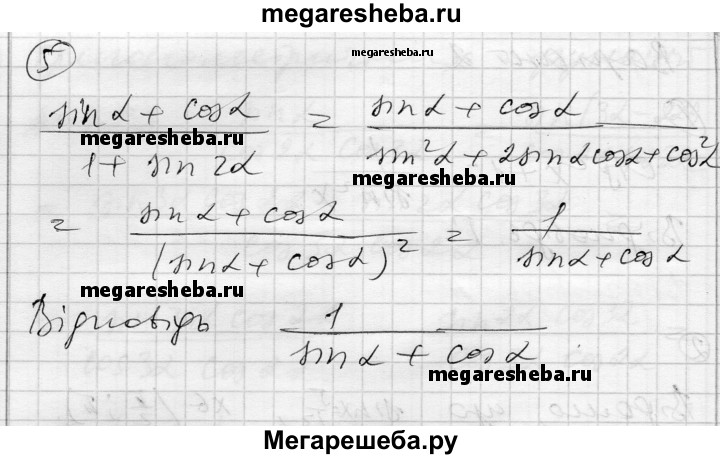 megaresheba.ru
5
megaresheba.ru
(sinα + cosα)/(1 + sin2α) = (sinα + cosα)/(sin²α + 2sinαcosα + cos²α)
megaresheba.ru
megaresheba.ru
= (sinα + cosα)/(sinα + cosα)² = 1/(sinα + cosα)
megaresheba.ru
Відповідь 1/(sinα + cosα)
megaresheba.ru
Мегарешеба.ру